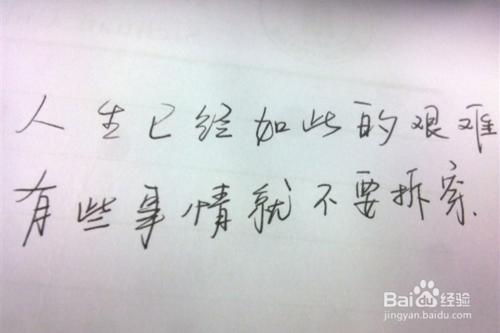 人生已经如此的艰难
有些事情就不要拆穿.
Bai du 经验
jingyan.baidu.com